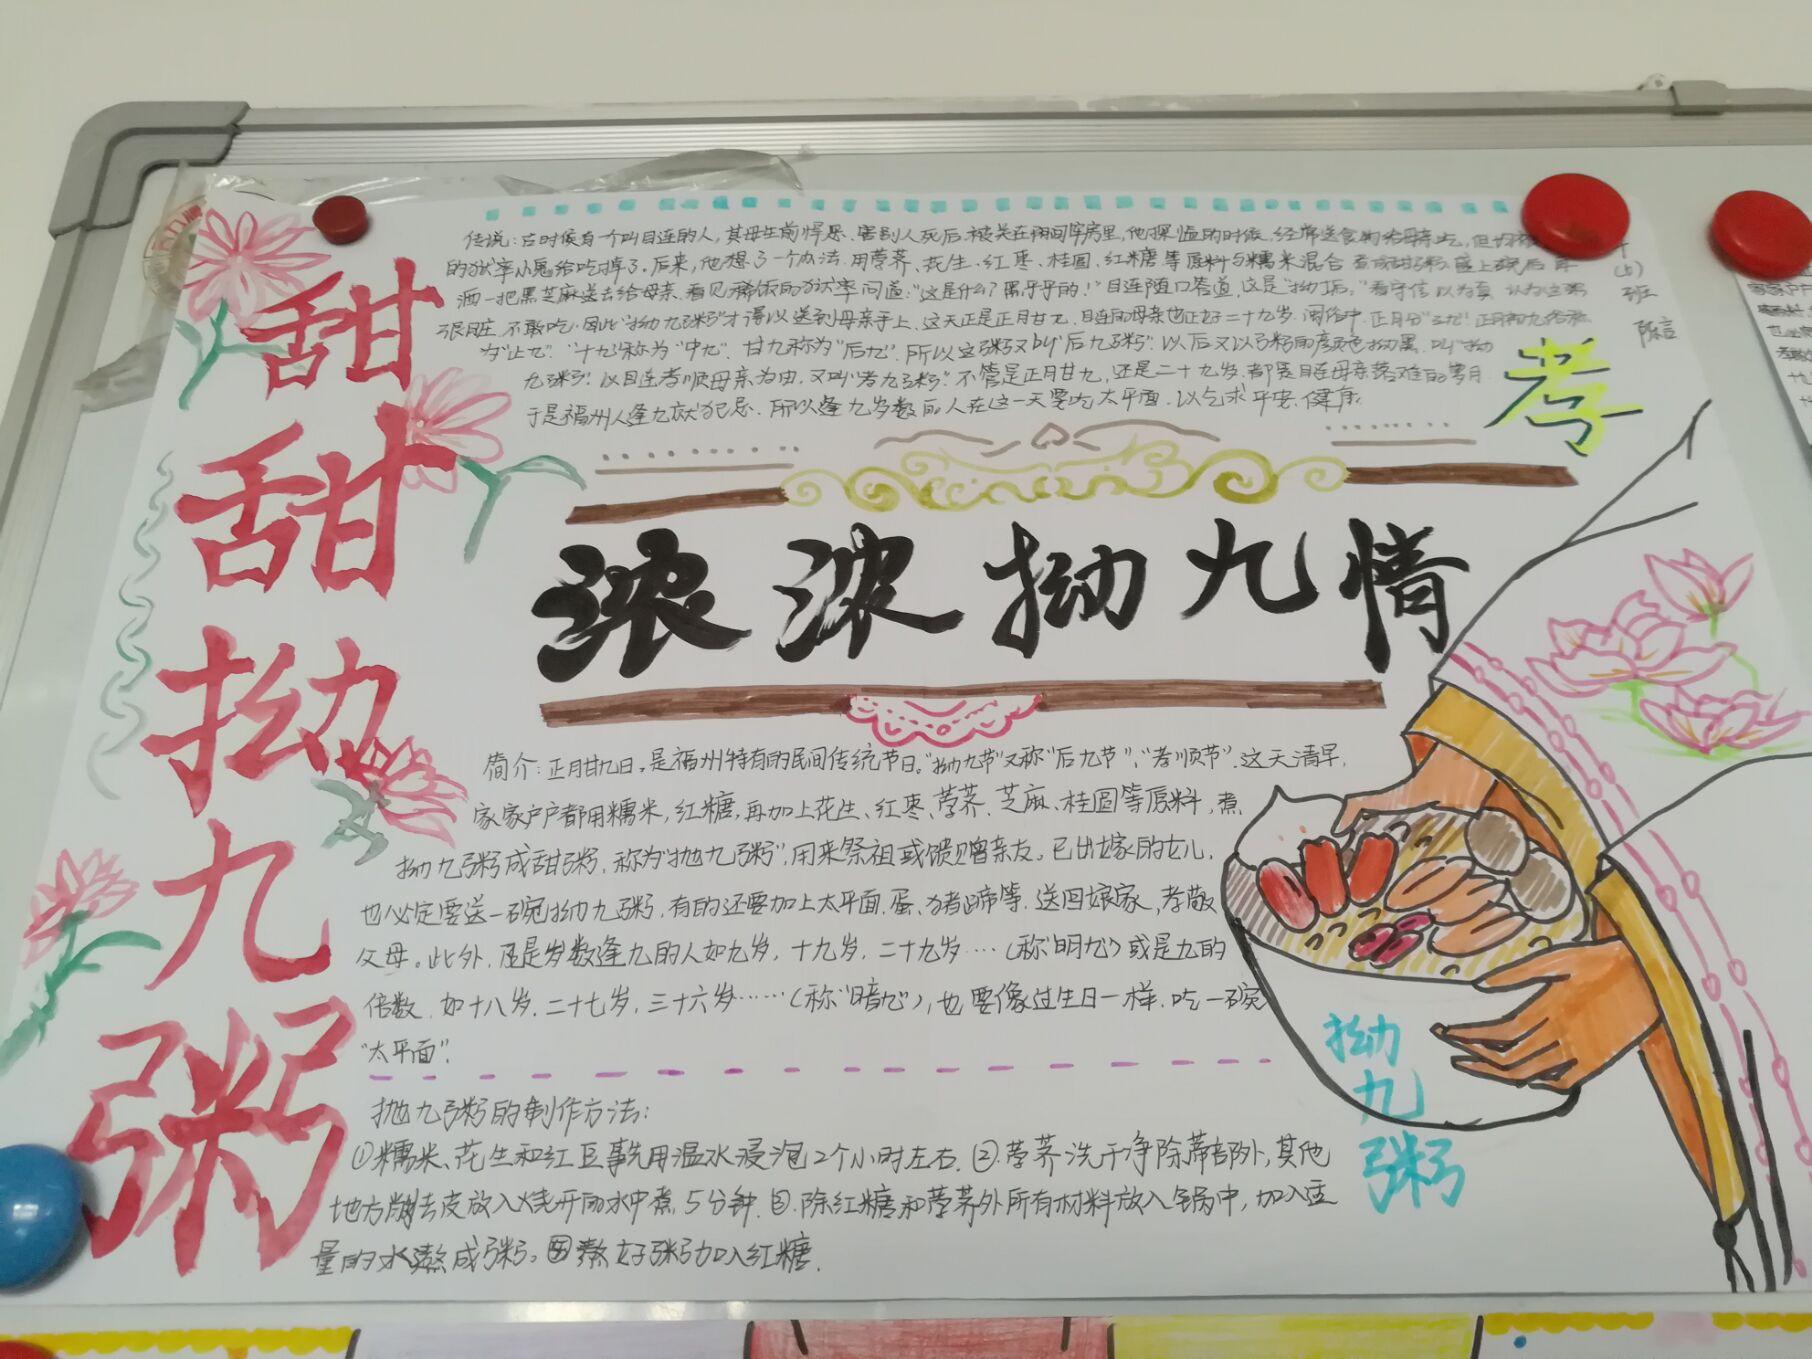 甜甜拗九粥
传说：古时候有一个叫目连的人，其母生前悍恶、害别人死后被关在阴间牢房里，他探监的时候，经常送食物给母亲吃，但均被
的狱卒小鬼给吃掉了，后来，他想了一个办法，用荸荠、花生、红枣、桂圆、红糖等原料与糯米混合，煮成甜粥，盛上碗后，再
洒一把黑芝麻送去给母亲，看见稀饭的狱卒问道：“这是什么？黑乎乎的！”目连随口答道，这是“拗垢。”看守信以为真，认为这粥
很脏，不敢吃，因此“拗九粥”才得以送到母亲手上，这天正是正月廿九，目连的母亲也正好二十九岁，闽俗中，正月分“三九”正月初九俗称
为“上九”、“十九”称为“中九”、廿九称为“后九”，所以这粥又叫“后九粥”，以后又以粥的颜色拗黑，叫“拗
九粥”，以目连孝顺母亲为由，又叫“孝九粥”。不管是正月廿九，还是二十九岁，都是目连母亲落难的
于是福州人逢九就犯忌，所以逢九岁数的人在这一天要吃太平面，以乞求平安、健康
(5)
班
陈言
孝
浓浓拗九情
简介：正月廿九日，是福州特有的民间传统节日。“拗九节”又称“后九节”、“孝顺节”。这天清早，
家家户户都用糯米，红糖，再加上花生、红枣、荸荠、芝麻、桂圆等原料，煮
拗九粥成甜粥，称为“拗九粥”，用来祭祖或馈赠亲友。已出嫁的女儿，
也必定要送一碗拗九粥，有的还要加上太平面、蛋、猪蹄等，送回娘家，孝敬
父母。此外，凡是岁数逢九的人如九岁，十九岁，二十九岁……（称“明九”）或是九的
倍数，如十八岁，二十七岁，三十六岁……（称“暗九”），也要像过生日一样，吃一碗
“太平面”。
拗九粥
拗九粥的制作方法：
①糯米、花生和红豆事先用温水浸泡2个小时左右。②荸荠洗干净除蒂部外，其他
地方削去皮放入烧开的水中煮5分钟。③除红糖和荸荠外所有材料放入锅中，加入适
量的水熬成粥。④熬好粥加入红糖。